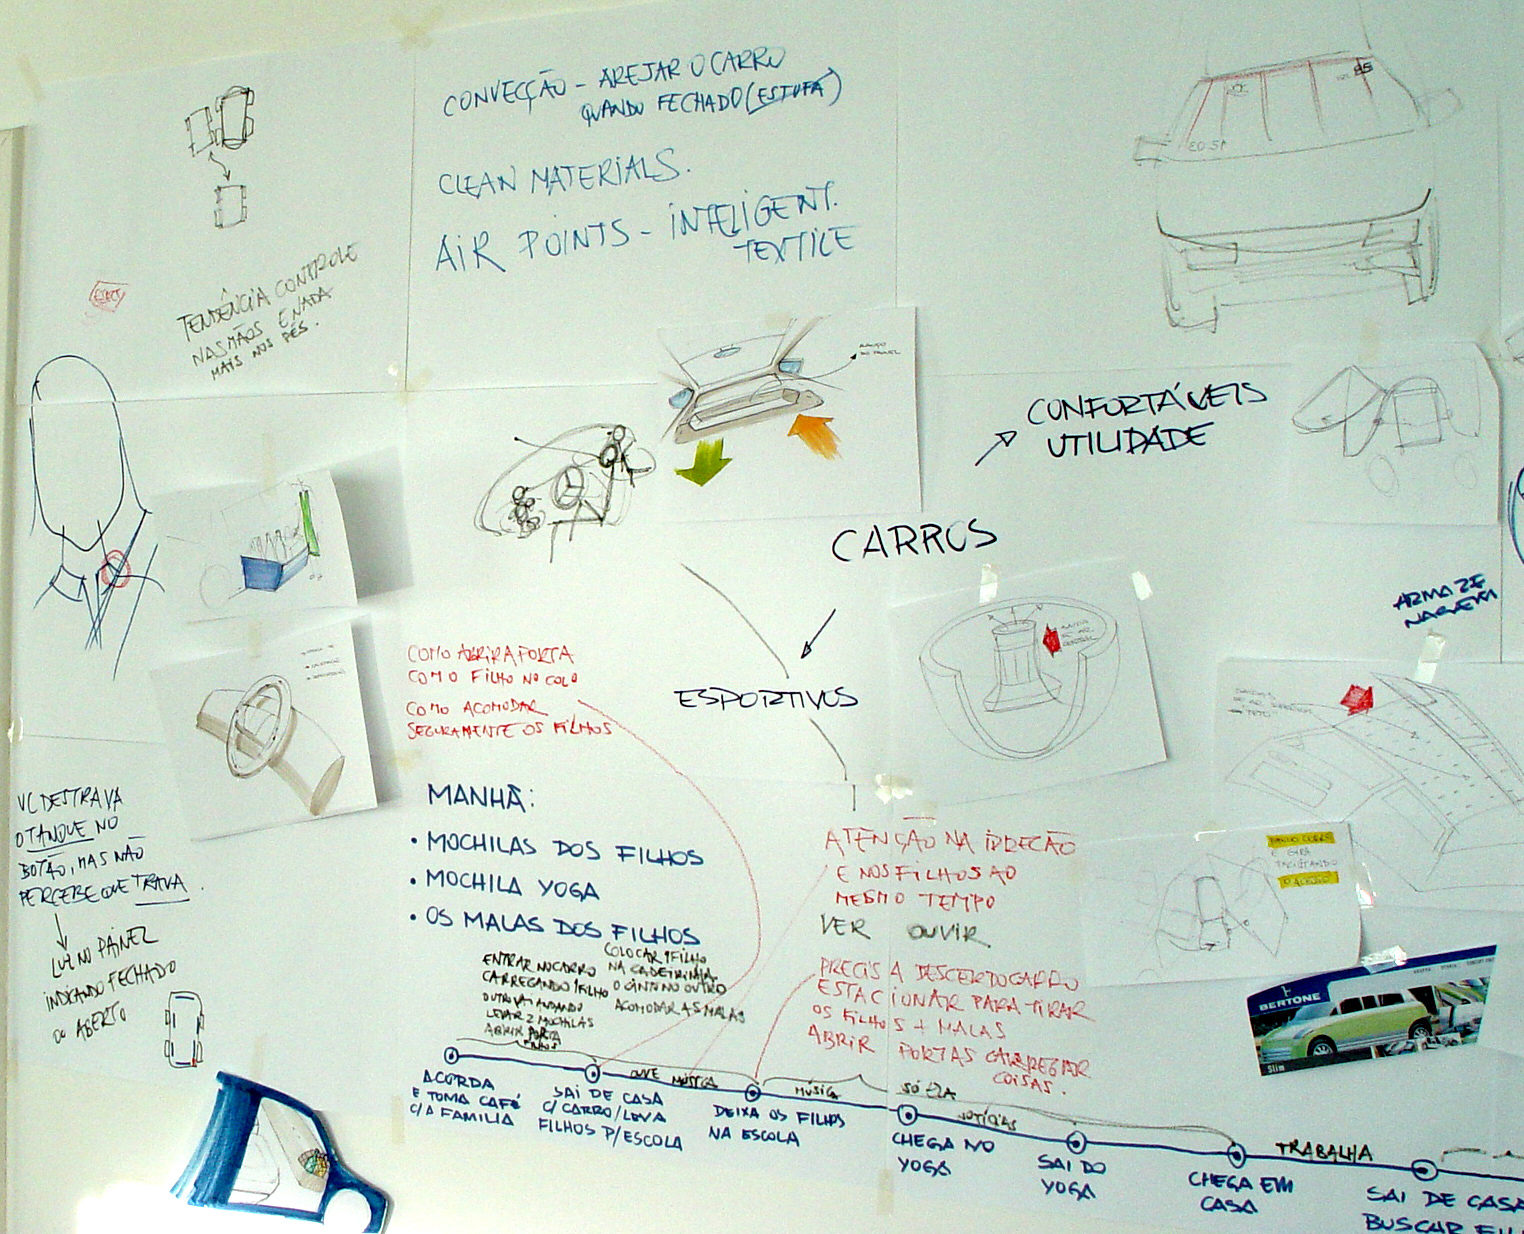 CONVECÇÃO - AREJAR O CARRO
QUANDO FECHADO (ESTUFA)
CLEAN MATERIALS.
AIR POINTS - INTELIGENT.
TEXTILE
TENDÊNCIA CONTROLE
NAS MÃOS E NADA
MAIS NOS PÉS.
CONFORTÁVEIS
UTILIDADE
CARROS
ESPORTIVOS
ARMAZE
NAGEM
COMO ABRIR A PORTA
COM O FILHO NO COLO
COMO ACOMODAR
SEGURAMENTE OS FILHOS
VC DESTRAVA
O TANQUE NO
BOTÃO, MAS NÃO
PERCEBE QUE TRAVA.
LUZ NO PAINEL
INDICANDO FECHADO
OU ABERTO
MANHÃ:
• MOCHILAS DOS FILHOS
• MOCHILA YOGA
• OS MALAS DOS FILHOS
ENTRAR NO CARRO
CARREGANDO 1 FILHO
OUTRO VAI ANDANDO
LEVAR 2 MOCHILAS
ABRIR PORTA
COLOCAR 1 FILHO
NA CADEIRINHA
O CINTO NO OUTRO
ACOMODAR AS MALAS
ATENÇÃO NA DIREÇÃO
E NOS FILHOS AO
MESMO TEMPO
VER OUVIR
PRECISA DESCER DO CARRO
ESTACIONAR PARA TIRAR
OS FILHOS + MALAS
ABRIR PORTAS CARREGAR
COISAS.
BERTONE
Slim
ACORDA
E TOMA CAFÉ
C/ A FAMILIA
SAI DE CASA
C/ CARRO/LEVA
FILHOS P/ ESCOLA
OUVE MÚSICA
DEIXA OS FILHOS
NA ESCOLA
MÚSICA
SÓ ELA
CHEGA NO
YOGA
NOTÍCIAS
SAI DO
YOGA
CHEGA EM
CASA
TRABALHA
SAI DE CASA
BUSCAR